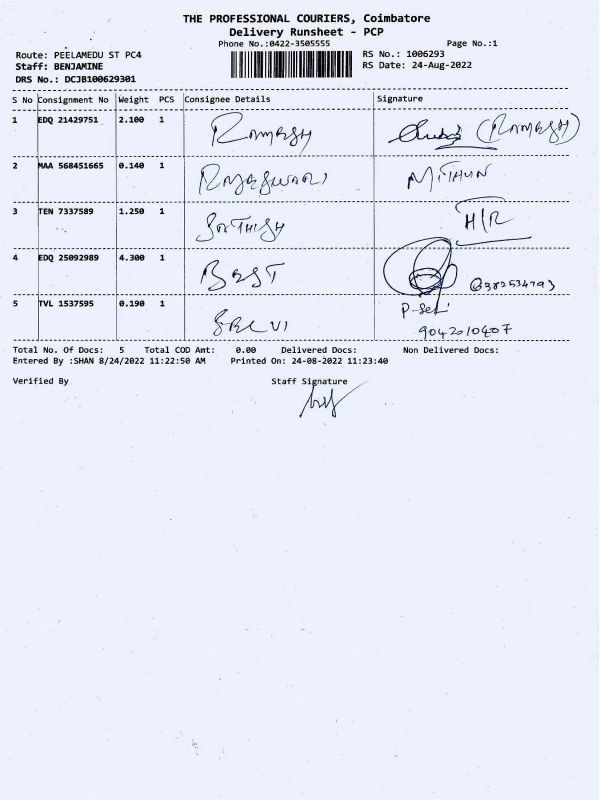 THE PROFESSIONAL COURIERS, Coimbatore
Delivery Runsheet - PCP
Phone No.:0422-3505555 Page No.:1
Route: PEELAMEDU ST PC4 RS No.: 1006293
Staff: BENJAMINE RS Date: 24-Aug-2022
DRS No.: DCJB100629301
S No Consignment No Weight PCS Consignee Details Signature
1 EDQ 21429751 2.100 1 RAMESH (RAMESH)
2 MAA 568451665 0.140 1 RAJESWARI MITHUN
3 TEN 7337589 1.250 1 SATHISH H/R
4 EDQ 25092989 4.300 1 BEST
5 TVL 1537595 0.190 1 SELVI
9042010407
Total No. Of Docs: 5 Total COD Amt: 0.00 Delivered Docs: Non Delivered Docs:
Entered By :SHAN 8/24/2022 11:22:50 AM Printed On: 24-08-2022 11:23:40
Verified By Staff Signature